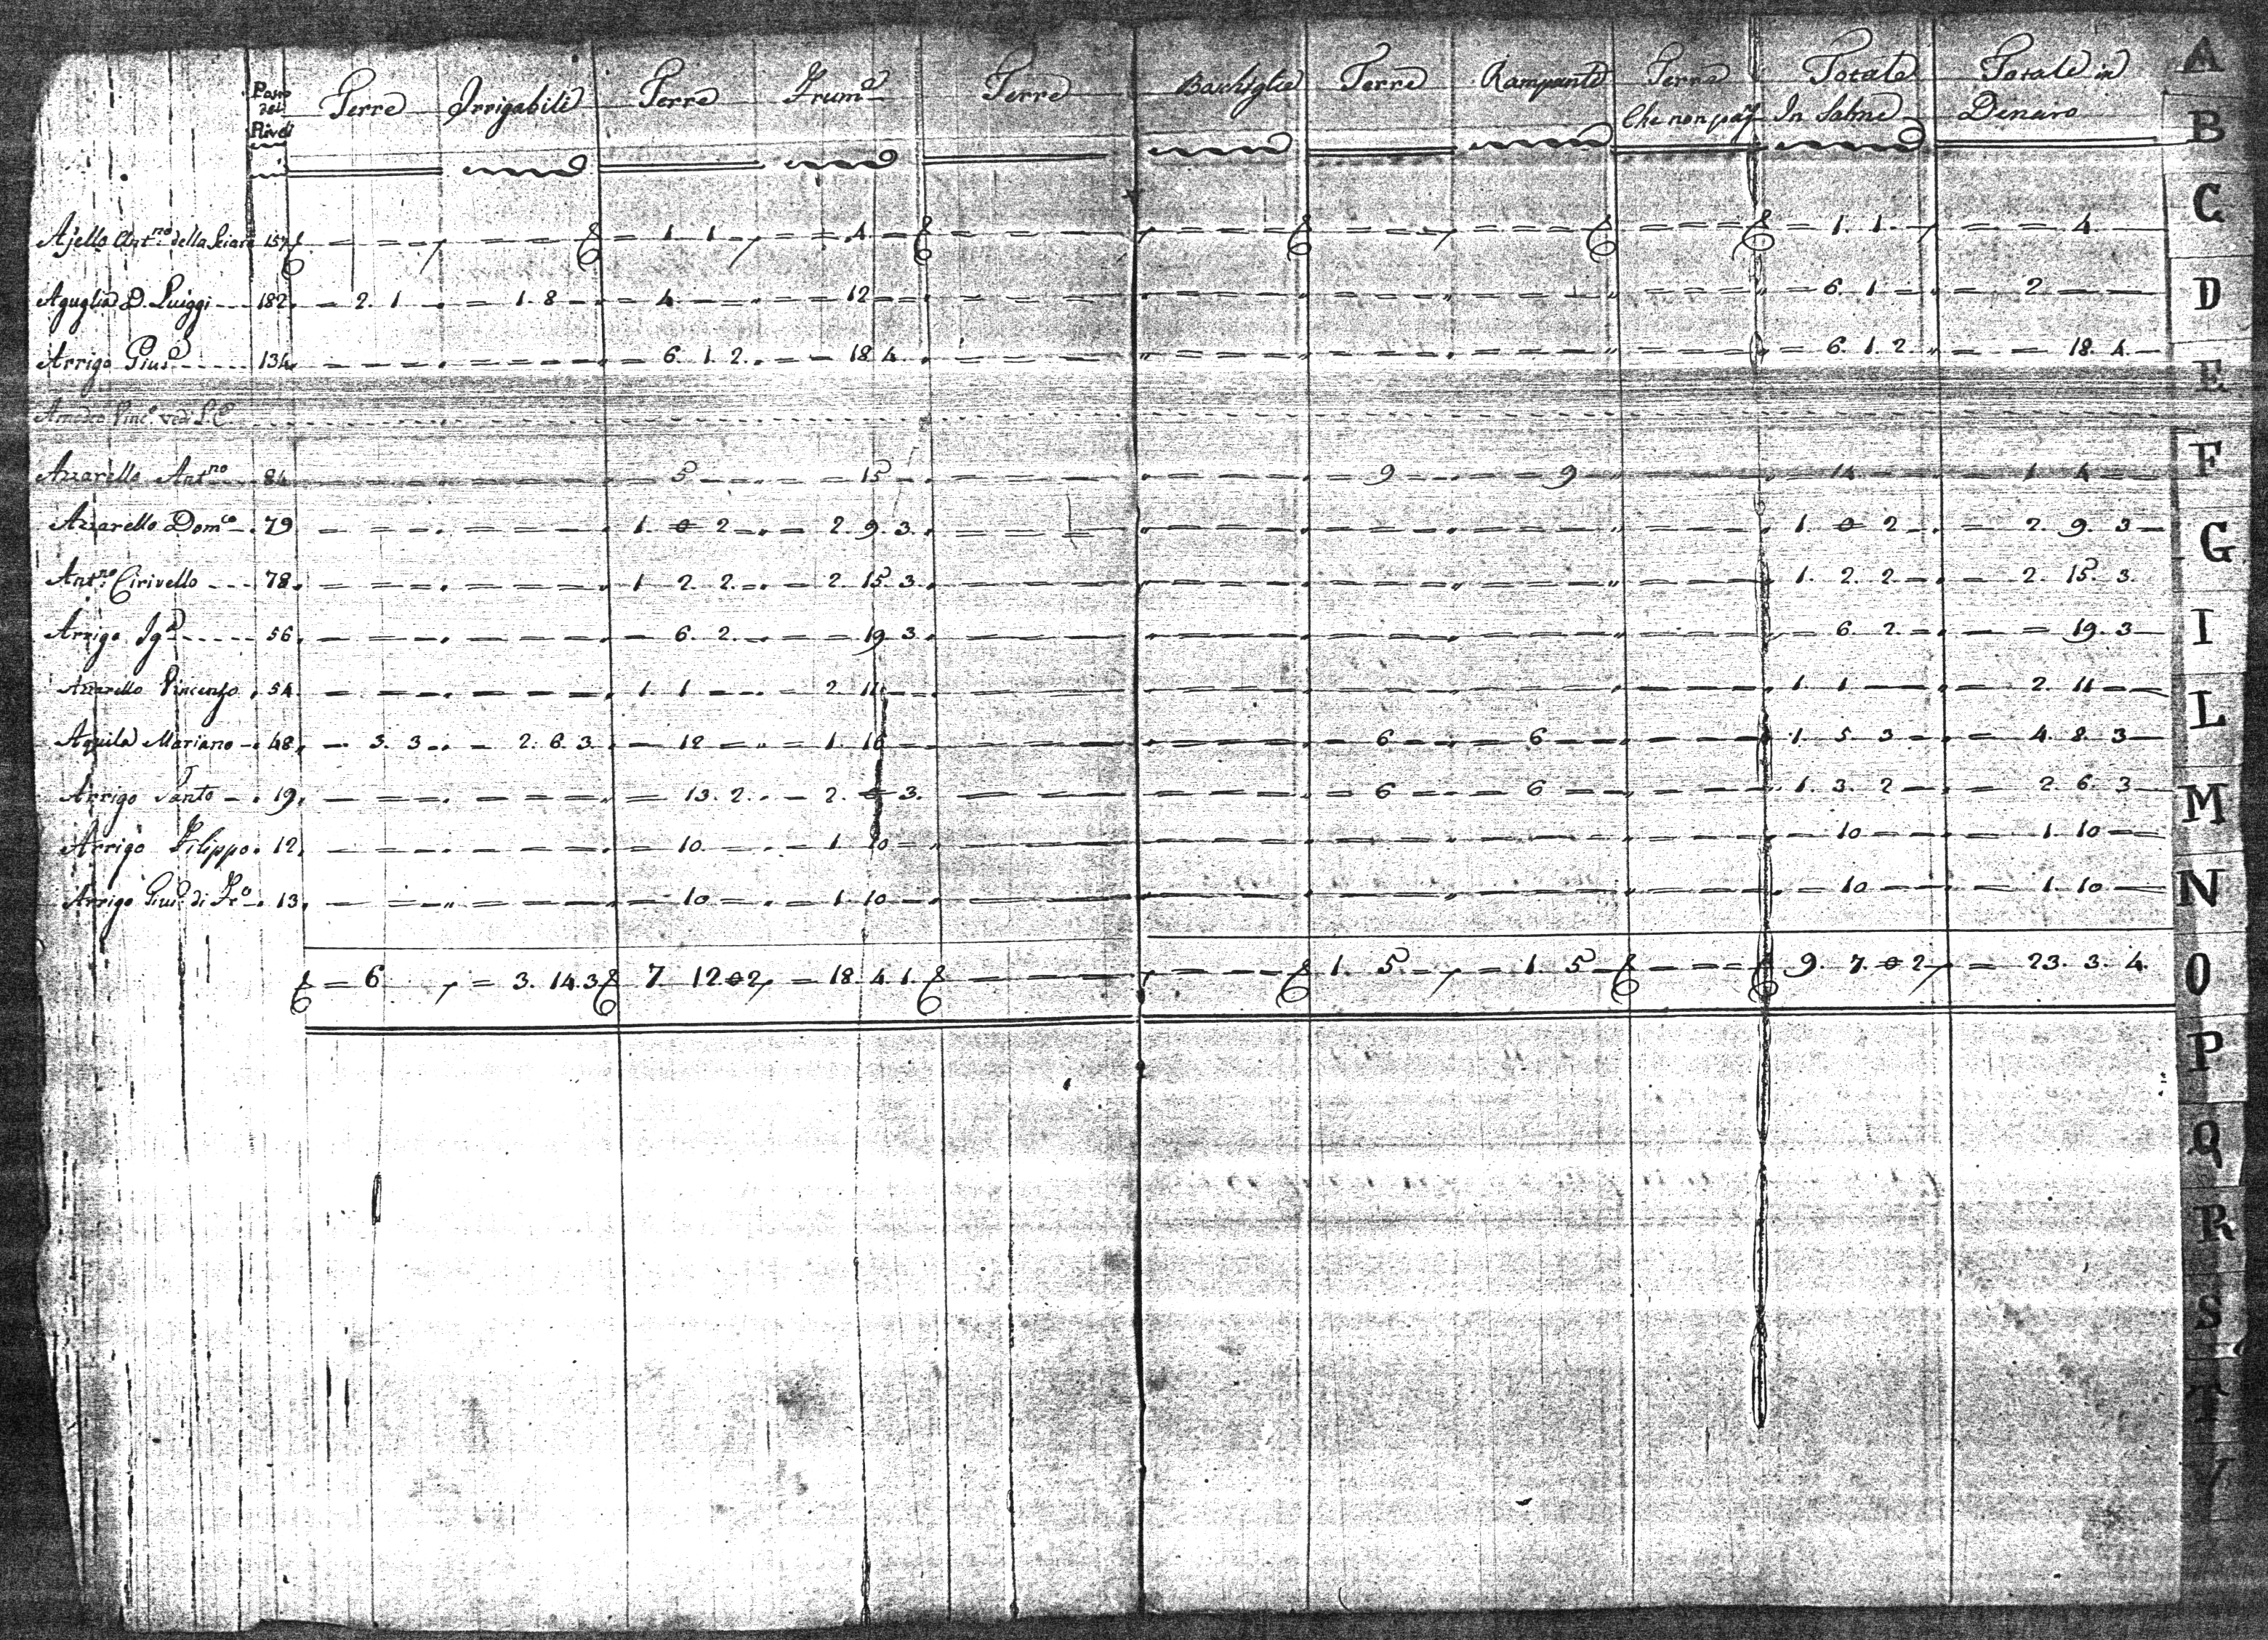 Posto dei Riveli Terre Irrigabili Terre Frum.e Terre Bachiglie Terre Rampanti Terre Che non pag. Totale In Salme Totale in Denaro
Ajello Ant.no della 157 = 1. 1. = 4 = 1. 1. = 4
Aguglia D. Luiggi 182 = 2. 1. = 1. 8 = 4 = 12 = 6. 1 = 2
Arrigo Gius.e 134 = 6. 1. 2. = 18. 4. = 6. 1. 2. = 18. 4.
Vinc.o vedi L. C.
Azzarello Ant.no 84 5 15 9 9 14 1. 4
Azzarello Dom.co 79 1. 0 2 = 2. 9. 3. 1. 0 2 = 2. 9. 3
Ant.no Cirivello 78 1 2. 2. = 2. 15 3. 1. 2. 2 = 2. 15. 3.
Arrigo Ig.o 56 = 6. 2. = 19 3. = 6. 2. = 19. 3
Azzarello Vincenzo 54 1. 1 = 2. 11 1. 1 = 2. 11
Aquila Mariano 48 = 3. 3 = 2. 6. 3. = 12 = 1. 16 = 6 = 6 1 5 3 = 4. 8. 3
Arrigo Santo 19 = 13. 2. = 2. 0 3. = 6 = 6 1. 3. 2 = 2. 6. 3
Arrigo Filippo 12 = 10 = 1. 10 = 10 = 1. 10
Arrigo Gius.e di Fr.o 13 = 10 = 1. 10 = 10 = 1. 10
= 6 = 3. 14. 3 7. 12 0 2 = 18. 4. 1. 1. 5 = 1. 5 9. 7. 0 2 = 23. 3. 4.
A
B
C
D
E
F
G
I
L
M
N
O
P
Q
R
S
T
V